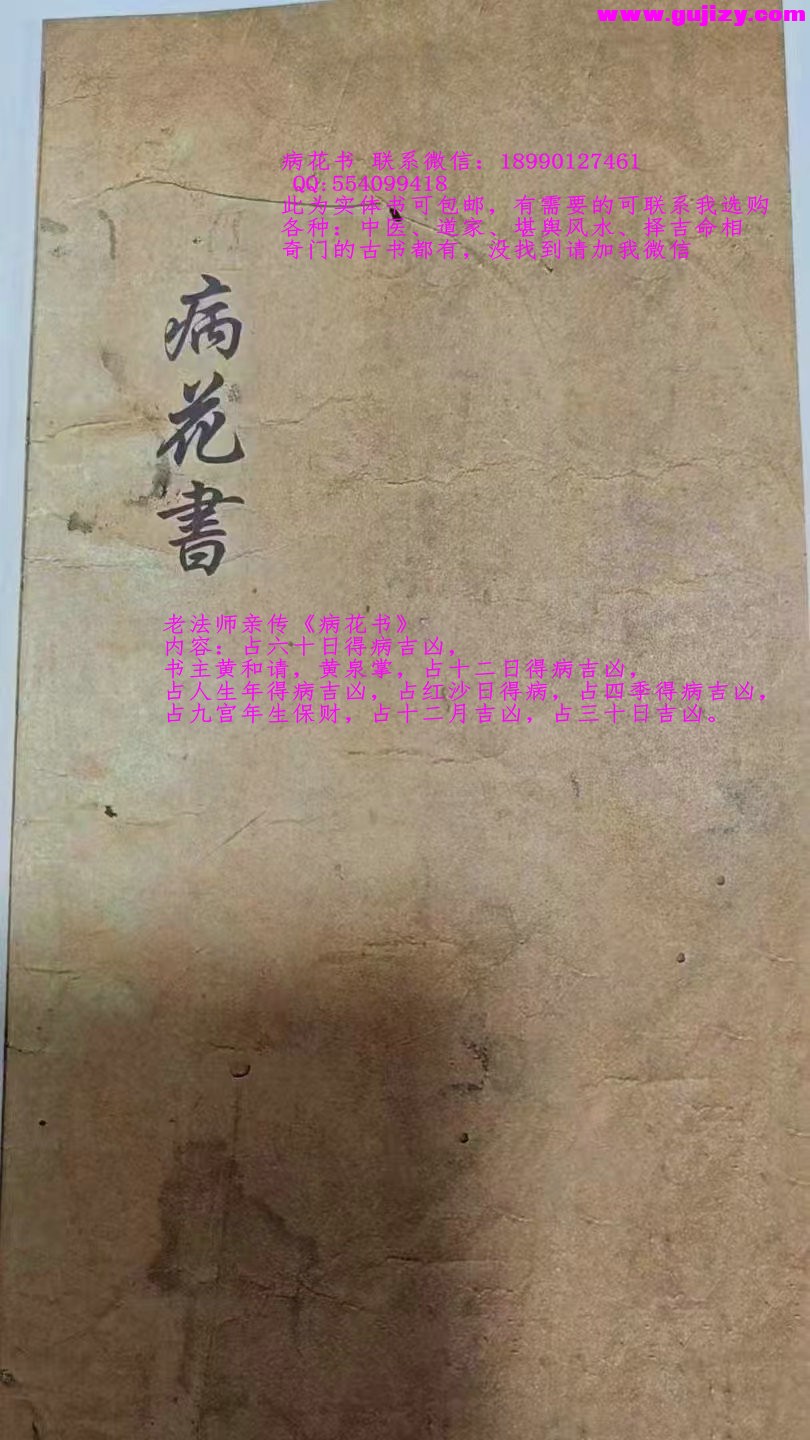 www.gujizy.com
病花书 联系微信：18990127461
QQ:554099418
此为实体书可包邮，有需要的可联系我选购
各种：中医、道家、堪舆风水、择吉命相
奇门的古书都有，没找到请加我微信
病花書
老法师亲传《病花书》
内容：占六十日得病吉凶，
书主黄和请，黄泉掌，占十二日得病吉凶，
占人生年得病吉凶，占红沙日得病，占四季得病吉凶，
占九宫年生保财，占十二月吉凶，占三十日吉凶。